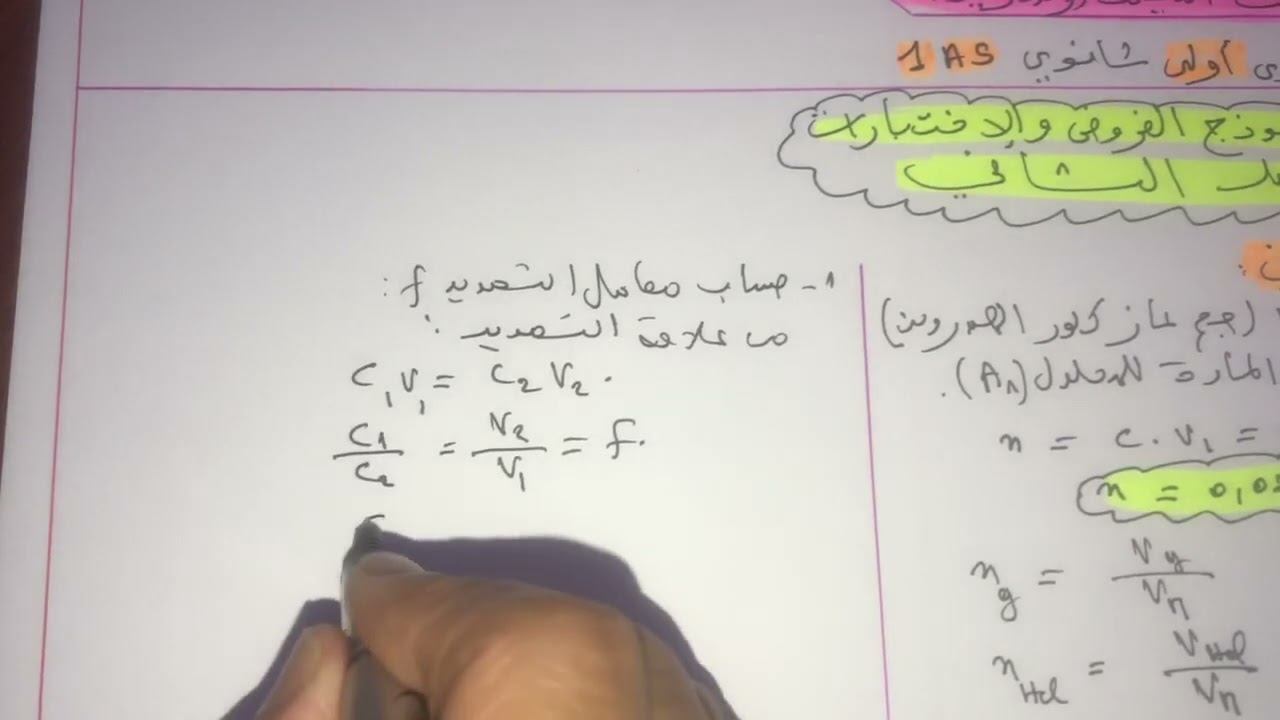 أولى ثانوي 1AS
وذج الفروض والإختبارات
الثاني
(حجم غاز كلور الهيدروجين)
المادة للمحلول (A₁).
n = C . V₁ =
n = 0,0
n_g = V_g / V_M
n_HCl = V_HCl / V_M
1- حساب معامل التمديد f :
من علاقة التمديد :
C₁V₁ = C₂V₂ .
C₁ / C₂ = V₂ / V₁ = f .